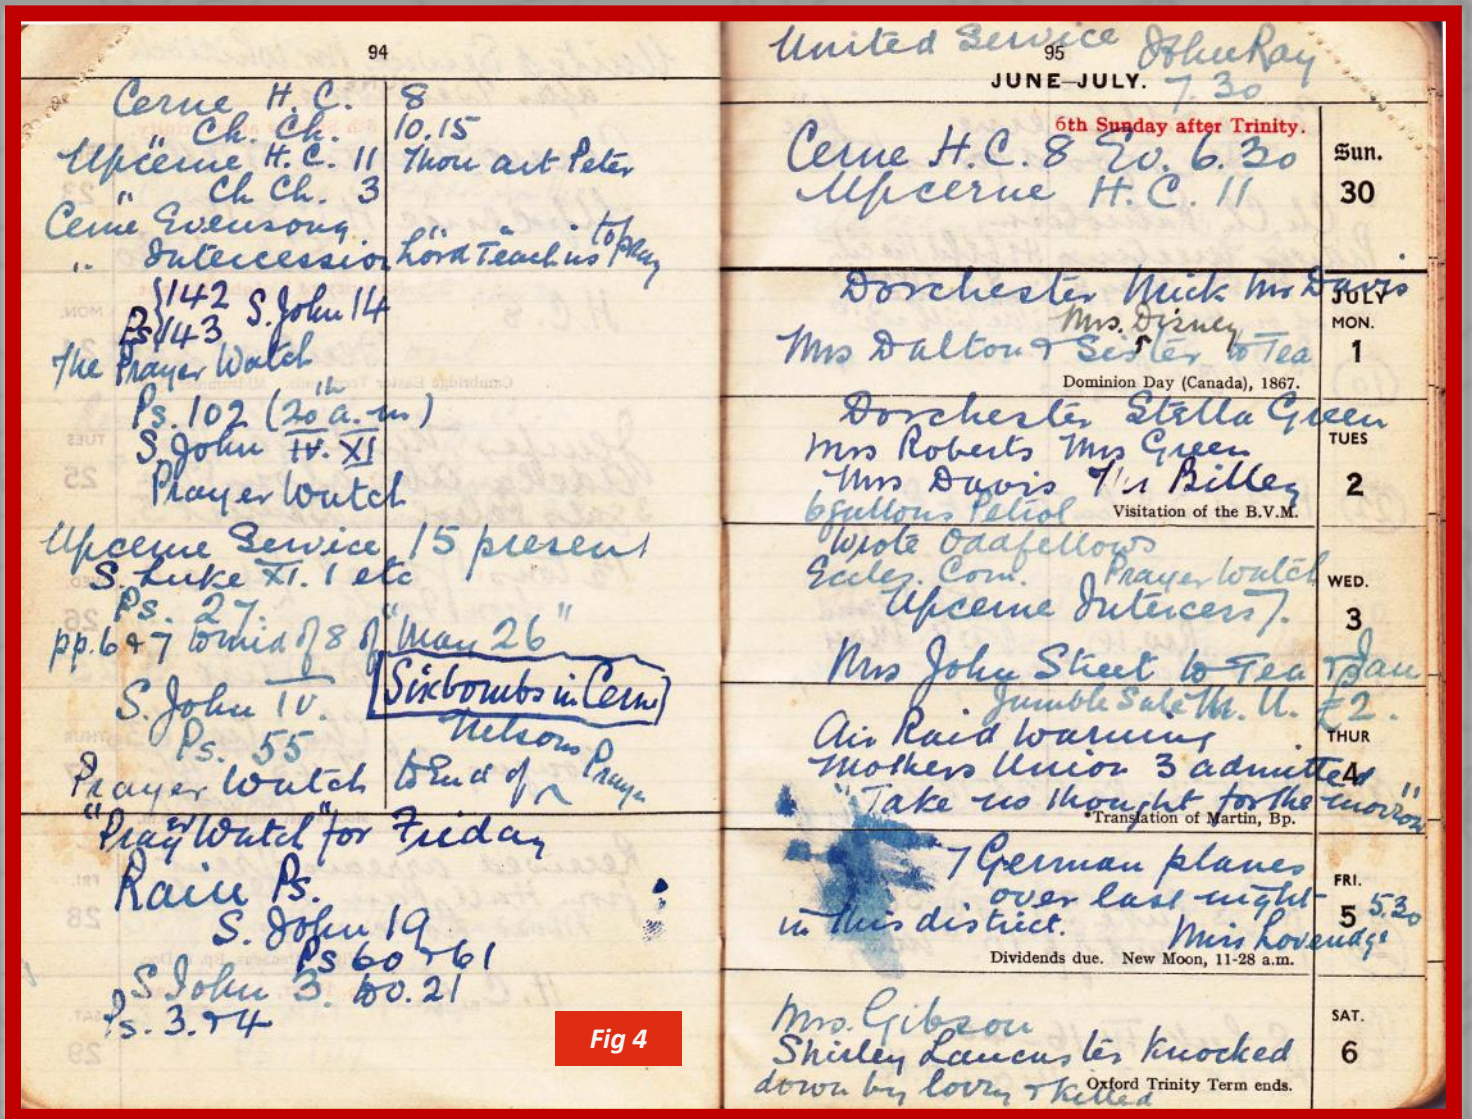 94
Cerne H. C. 8
" Ch. Ch. 10.15
Upcerne H. C. 11 Thou art Peter
" Ch Ch. 3
Cerne Evensong " "
" Intercession Lord Teach us to pray
Ps {142 S. John 14
143
The Prayer Watch
Ps. 102 (20th a.m)
S. John IV. XI
Prayer Watch
Upcerne Service 15 present
S. Luke XI. 1 etc
Ps. 27. " "
pp. 6 & 7 to mid of 8 of May 26
Six bombs in Cerne
S. John IV. Nelsons
Ps. 55
Prayer Watch to End of Prayer
"Prayer Watch" for Friday
Rain Ps.
S. John 19
Ps 60 & 61
S John 3. to v. 21
Ps. 3. & 4
Fig 4
United Service John Ray
95
JUNE—JULY. 7.30
6th Sunday after Trinity.
Cerne H.C. 8 Ev. 6.30 Sun.
Upcerne H. C. 11 30
Dorchester Mick Mr Davis
JULY
Mrs. Disney MON.
Mrs Dalton & Sister to Tea 1
Dominion Day (Canada), 1867.
Dorchester Stella Green
Mrs Roberts Mrs Green TUES
Mrs Davis Mr Billey 2
6 gallons Petrol Visitation of the B.V.M.
Wrote Oddfellows
Eccles. Com. Prayer Watch WED.
Upcerne Intercess 7. 3
Mrs John Street to Tea & Jan
Jumble Sale M. U. £2.
Air Raid warning THUR
Mothers Union 3 admitted 4
"Take no thought for the morrow"
Translation of Martin, Bp.
7 German planes FRI.
over last night 5 5.30
in this district. Miss Lovendge
Dividends due. New Moon, 11-28 a.m.
Mrs. Gibson SAT.
Shirley Lancaster knocked 6
down by lorry & killed
Oxford Trinity Term ends.